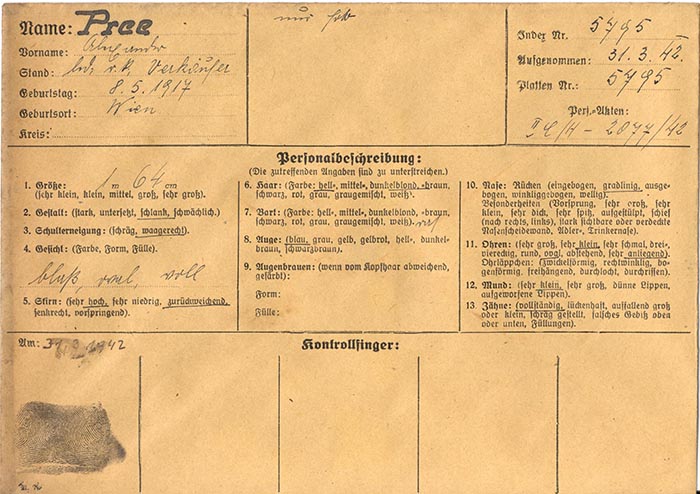 Name: Pree
Vorname: Alexander
Stand: led. r.k. Verkäufer
Geburtstag: 8.5.1917
Geburtsort: Wien
Kreis:
nur
Index Nr. 5795
Aufgenommen: 31.3.42.
Platten Nr.: 5795
Pers.-Akten:
2077/42
Personalbeschreibung:
(Die zutreffenden Angaben sind zu unterstreichen.)
1. Größe: 1 m 64 cm
(sehr klein, klein, mittel, groß, sehr groß).
2. Gestalt: (stark, untersetzt, schlank, schwächlich).
3. Schulterneigung: (schräg, waagerecht).
4. Gesicht: (Farbe, Form, Fülle).
blaß oval, voll
5. Stirn: (sehr hoch, sehr niedrig, zurückweichend,
senkrecht, vorspringend).
6. Haar: (Farbe: hell-, mittel-, dunkelblond, -braun,
schwarz, rot, grau, graugemischt, weiß).
7. Bart: (Farbe: hell-, mittel-, dunkelblond, -braun,
schwarz, rot, grau, graugemischt, weiß).
8. Auge: (blau, grau, gelb, gelbrot, hell-, dunkel-
braun, schwarzbraun).
9. Augenbrauen: (wenn vom Kopfhaar abweichend,
gefärbt):
Form:
Fülle:
10. Nase: Rücken (eingebogen, gradlinig, ausge-
bogen, winkliggebogen, wellig).
Besonderheiten (Vorsprung, sehr groß, sehr
klein, sehr dick, sehr spitz, aufgestülpt, schief
(nach rechts, links), stark sichtbare oder verdeckte
Nasenscheidewand, Adler-, Trinkernase).
11. Ohren: (sehr groß, sehr klein, sehr schmal, drei-,
viereckig, rund, oval, abstehend, sehr anliegend).
Ohrläppchen: (zwickelförmig, rechtwinklig, bo-
genförmig, freihängend, durchlocht, durchrissen).
12. Mund: (sehr klein, sehr groß, dünne Lippen,
aufgeworfene Lippen).
13. Zähne: (vollständig, lückenhaft, auffallend groß
oder klein, schräg gestellt, falsches Gebiß oben
oder unten, Füllungen).
Am: 31.3.1942
Kontrollfinger: